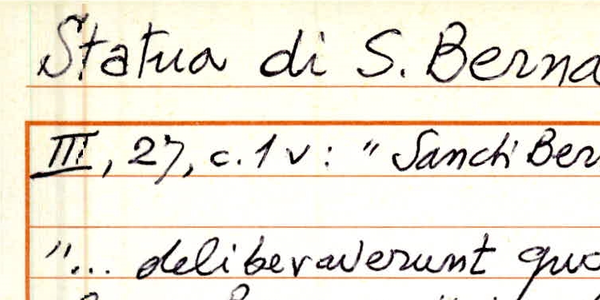 Statua di S. Berna
III, 27, c. 1 v : " Sancti Ber
"... deliberaverunt quo